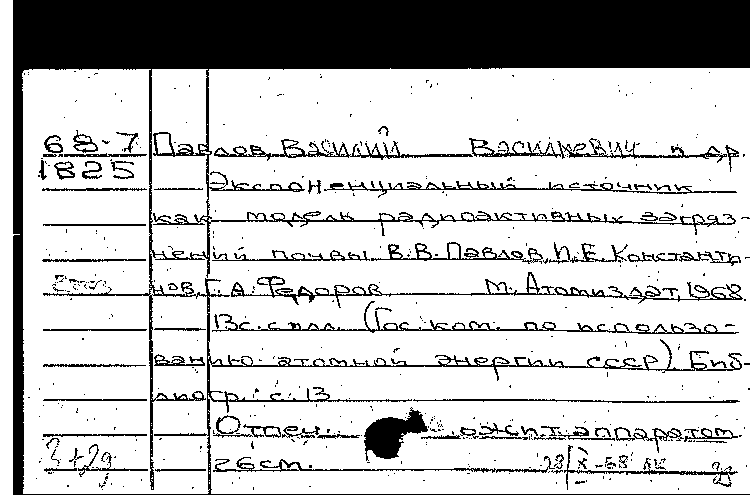 68-7 Павлов, Василий Васильевич и др.
1825
Экспоненциальный источник
как модель радиоактивных загряз-
нений почвы. В.В. Павлов, И.Е. Константи-
нов, Г.А. Федоров М. Атомиздат, 1968
13с. с илл. (Гос. ком. по использо-
ванию атомной энергии СССР). Биб-
лиогр.: с. 13
Отпеч. аппаратом
2+2д 26см. 28/X-68